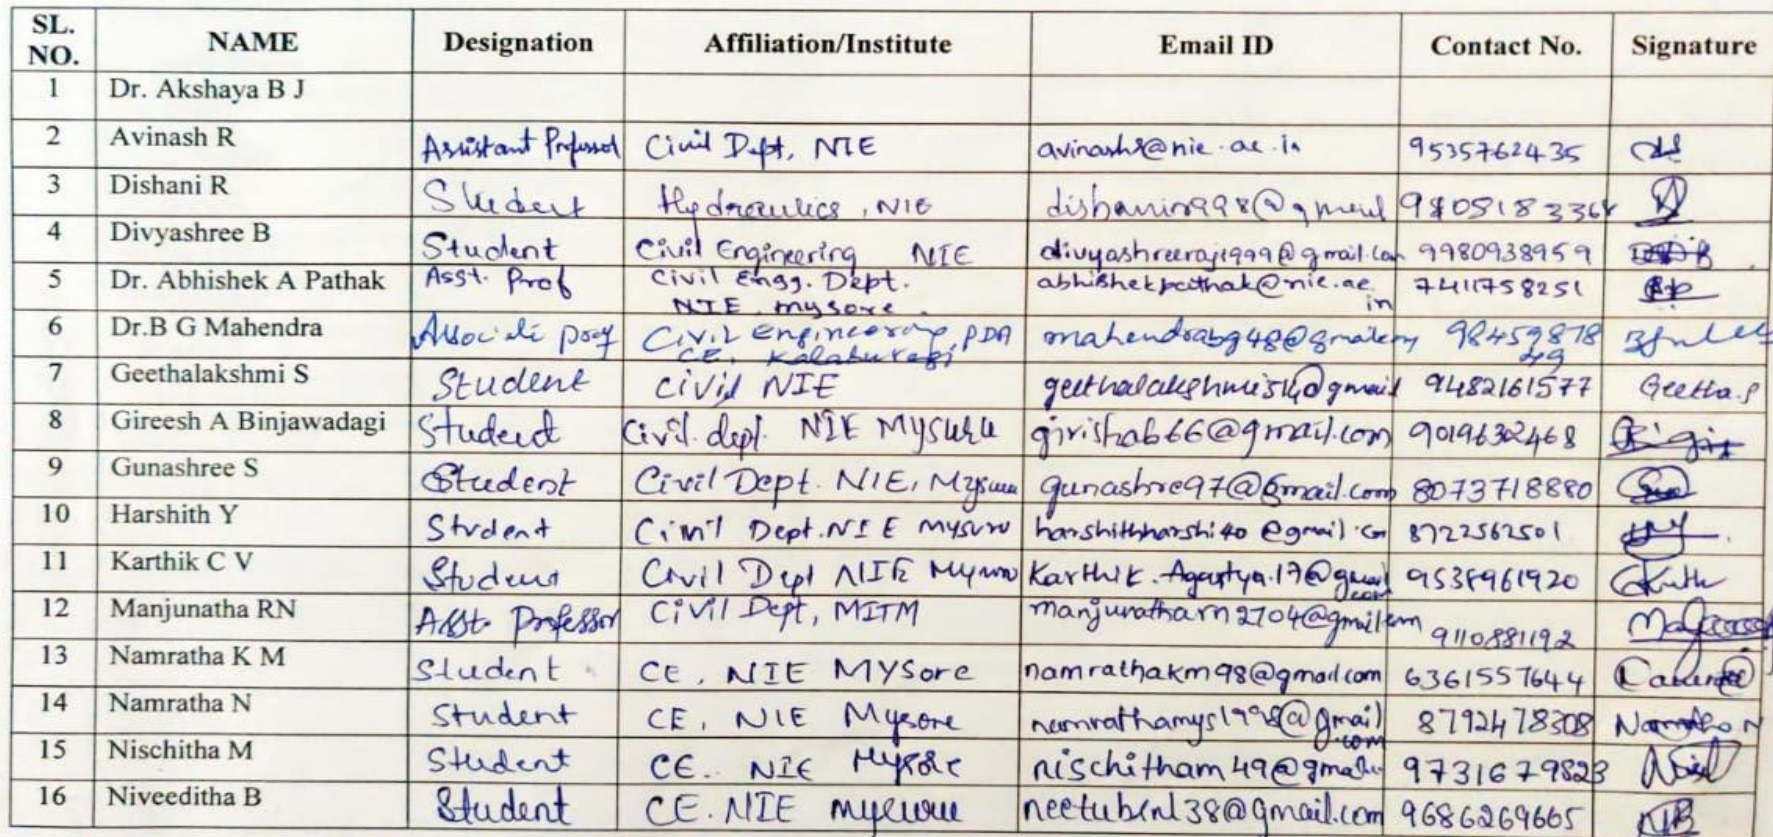 SL. NO. NAME Designation Affiliation/Institute Email ID Contact No. Signature
1 Dr. Akshaya B J
2 Avinash R Assistant Professor Civil Dept, NIE avinashr@nie.ac.in 9535762435
3 Dishani R Student Hydraulics, NIE
4 Divyashree B Student Civil Engineering NIE divyashreeraj1999@gmail.com 9980938959
5 Dr. Abhishek A Pathak Asst. Prof Civil Engg. Dept. NIE, mysore. abhishekpathak@nie.ac.in 7411758251
6 Dr.B G Mahendra Associate prof Civil Engineering, PDA CE, Kalaburagi mahendrabg48@gmail.com 9845987849
7 Geethalakshmi S Student Civil NIE geethalakshmis14@gmail 9482161577 Geetha.S
8 Gireesh A Binjawadagi Student Civil. dept. NIE Mysuru girishab66@gmail.com 9019632468
9 Gunashree S Student Civil Dept. NIE, Mysuru gunashre97@gmail.com 8073718880
10 Harshith Y Student Civil Dept. NIE Mysuru harshithharshi40@gmail.com 8722562501
11 Karthik C V Student Civil Dept NIE Mysuru Karthik.Agastya.17@gmail.com 9538961920
12 Manjunatha RN Asst. Professor Civil Dept, MITM manjunatharn2704@gmail.com 9110881192
13 Namratha K M Student CE, NIE MYSore namrathakm98@gmail.com 6361557644
14 Namratha N Student CE, NIE Mysore namrathamys1998@gmail.com 8792478308 Namratha N
15 Nischitha M Student CE. NIE Mysore nischitham49@gmail 9731679823
16 Niveeditha B Student CE. NIE mysuru 9686269665 NB